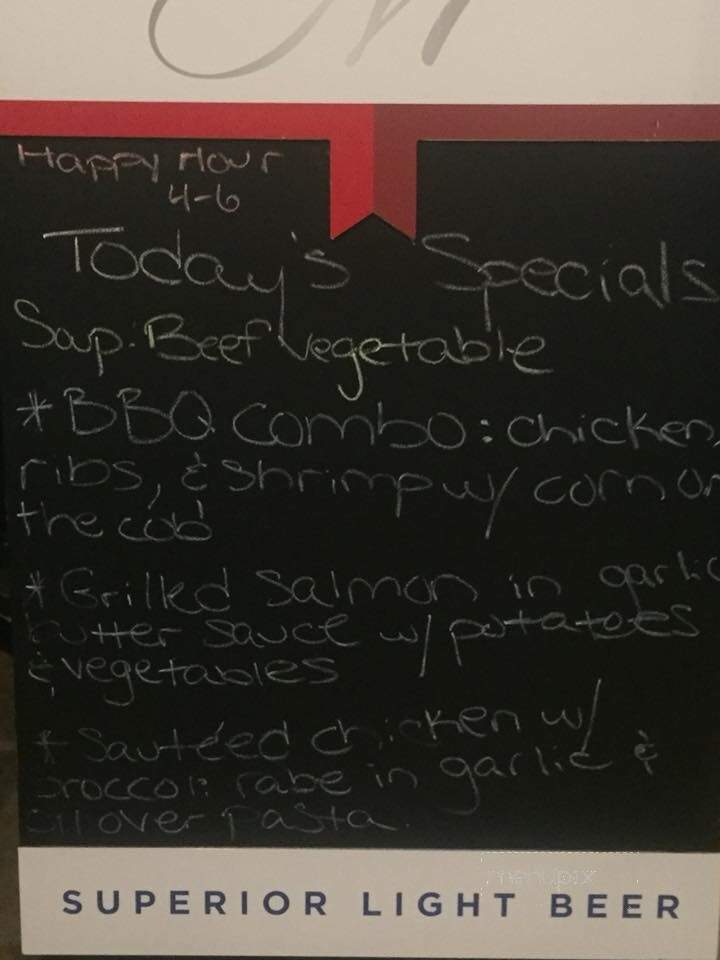 Happy Hour
4-6
Today's Specials
Soup: Beef vegetable
* BBQ combo: chicken,
ribs, & shrimp w/ corn on
the cob
* Grilled salmon in garlic
butter sauce w/ potatoes
& vegetables
* Sautéed chicken w/
broccoli rabe in garlic &
oil over pasta.
menupix
SUPERIOR LIGHT BEER